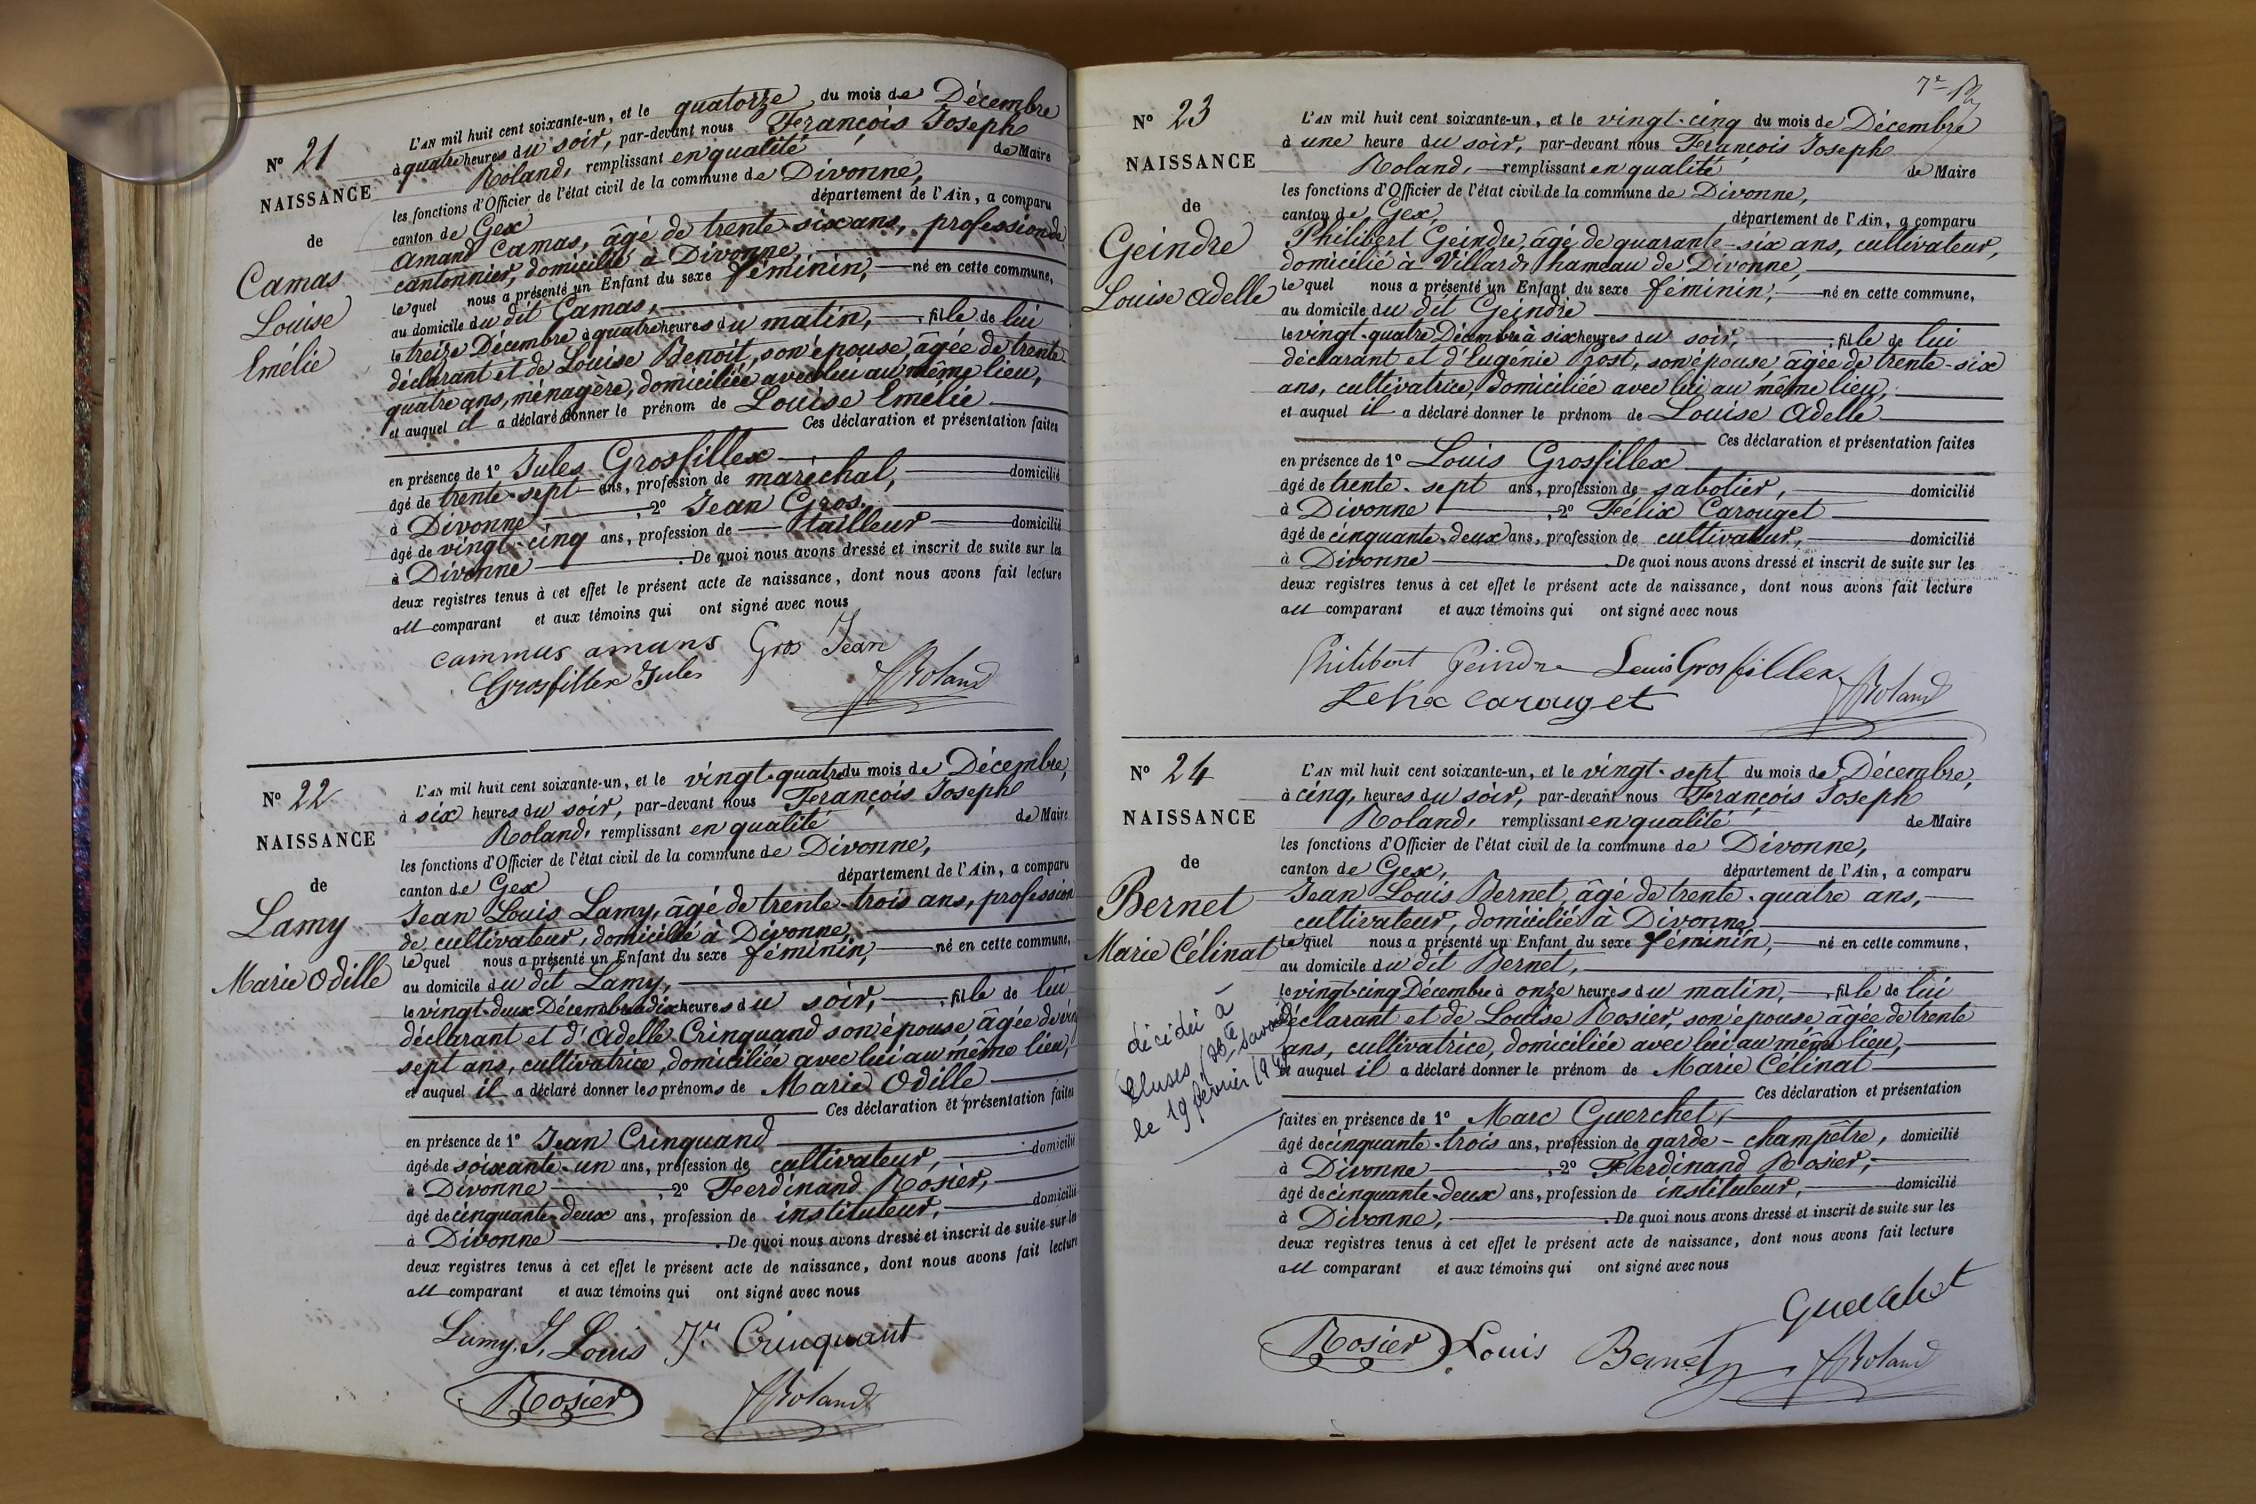 N° 21
NAISSANCE
de
Camas
Louise
Emélie
L'AN mil huit cent soixante-un, et le quatorze du mois de Décembre
à quatre heures du soir, par-devant nous François Joseph
Roland, remplissant en qualité de Maire
les fonctions d'Officier de l'état civil de la commune de Divonne,
canton de Gex département de l'Ain, a comparu
Amand Camas, âgé de trente-six ans, profession de
cantonnier, domicilié à Divonne,
lequel nous a présenté un Enfant du sexe féminin, né en cette commune,
au domicile du dit Camas,
le treize Décembre à quatre heures du matin, fille de lui
déclarant et de Louise Benoit, son épouse, âgée de trente
quatre ans, ménagère, domiciliée avec lui au même lieu,
et auquel il a déclaré donner le prénom de Louise Emélie
Ces déclaration et présentation faites
en présence de 1° Jules Grosfillex
âgé de trente-sept ans, profession de maréchal, domicilié
à Divonne, 2° Jean Gros.
âgé de vingt-cinq ans, profession de tailleur domicilié
à Divonne. De quoi nous avons dressé et inscrit de suite sur les
deux registres tenus à cet effet le présent acte de naissance, dont nous avons fait lecture
au comparant et aux témoins qui ont signé avec nous
cammus amans Gros Jean
Grosfillex Jules JRoland
N° 22
NAISSANCE
de
Lamy
Marie Odille
L'AN mil huit cent soixante-un, et le vingt-quatre du mois de Décembre,
à six heures du soir, par-devant nous François Joseph
Roland, remplissant en qualité de Maire
les fonctions d'Officier de l'état civil de la commune de Divonne,
canton de Gex département de l'Ain, a comparu
Jean Louis Lamy, âgé de trente-trois ans, profession
de cultivateur, domicilié à Divonne,
lequel nous a présenté un Enfant du sexe féminin, né en cette commune,
au domicile du dit Lamy,
le vingt-deux Décembre à dix heures du soir, fille de lui
déclarant et d'Adelle Crinquand son épouse, âgée de vin
sept ans, cultivatrice, domiciliée avec lui au même lieu,
et auquel il a déclaré donner les prénoms de Marie Odille
Ces déclaration et présentation faites
en présence de 1° Jean Crinquand
âgé de soixante-un ans, profession de cultivateur, domicilié
à Divonne, 2° Ferdinand Rosier,
âgé de cinquante-deux ans, profession de instituteur, domicilié
à Divonne. De quoi nous avons dressé et inscrit de suite sur les
deux registres tenus à cet effet le présent acte de naissance, dont nous avons fait lecture
au comparant et aux témoins qui ont signé avec nous
Lamy. J. Louis Jn Crinquant
Rosier JRoland
7e
N° 23
NAISSANCE
de
Geindre
Louise Adelle
L'AN mil huit cent soixante-un, et le vingt-cinq du mois de Décembre
à une heure du soir, par-devant nous François Joseph
Roland, remplissant en qualité de Maire
les fonctions d'Officier de l'état civil de la commune de Divonne,
canton de Gex, département de l'Ain, a comparu
Philibert Geindre, âgé de quarante-six ans, cultivateur,
domicilié à Villard, hameau de Divonne,
lequel nous a présenté un Enfant du sexe féminin, né en cette commune,
au domicile du dit Geindre
le vingt-quatre Décembre à six heures du soir, fille de lui
déclarant et d'Eugénie Prost, son épouse, âgée de trente-six
ans, cultivatrice, domiciliée avec lui au même lieu,
et auquel il a déclaré donner le prénom de Louise Adelle
Ces déclaration et présentation faites
en présence de 1° Louis Grosfillex
âgé de trente-sept ans, profession de sabotier, domicilié
à Divonne, 2° Félix Carouget
âgé de cinquante-deux ans, profession de cultivateur, domicilié
à Divonne. De quoi nous avons dressé et inscrit de suite sur les
deux registres tenus à cet effet le présent acte de naissance, dont nous avons fait lecture
au comparant et aux témoins qui ont signé avec nous
Philibert Geindre Louis Grosfillex
Felix Carouget JRoland
N° 24
NAISSANCE
de
Bernet
Marie Célinat
décidée à
Cluses (Hte Savoie)
le 19 février 19
L'AN mil huit cent soixante-un, et le vingt-sept du mois de Décembre,
à cinq heures du soir, par-devant nous François Joseph
Roland, remplissant en qualité de Maire
les fonctions d'Officier de l'état civil de la commune de Divonne,
canton de Gex, département de l'Ain, a comparu
Jean Louis Bernet, âgé de trente-quatre ans,
cultivateur, domicilié à Divonne,
lequel nous a présenté un Enfant du sexe féminin, né en cette commune,
au domicile du dit Bernet,
le vingt-cinq Décembre à onze heures du matin, fille de lui
déclarant et de Louise Rosier, son épouse âgée de trente
ans, cultivatrice, domiciliée avec lui au même lieu,
et auquel il a déclaré donner le prénom de Marie Célinat
Ces déclaration et présentation
faites en présence de 1° Marc Guerchet,
âgé de cinquante-trois ans, profession de garde-champêtre, domicilié
à Divonne, 2° Ferdinand Rosier,
âgé de cinquante-deux ans, profession de instituteur, domicilié
à Divonne, . De quoi nous avons dressé et inscrit de suite sur les
deux registres tenus à cet effet le présent acte de naissance, dont nous avons fait lecture
au comparant et aux témoins qui ont signé avec nous
Guerchet
Rosier Louis Bernet JRoland